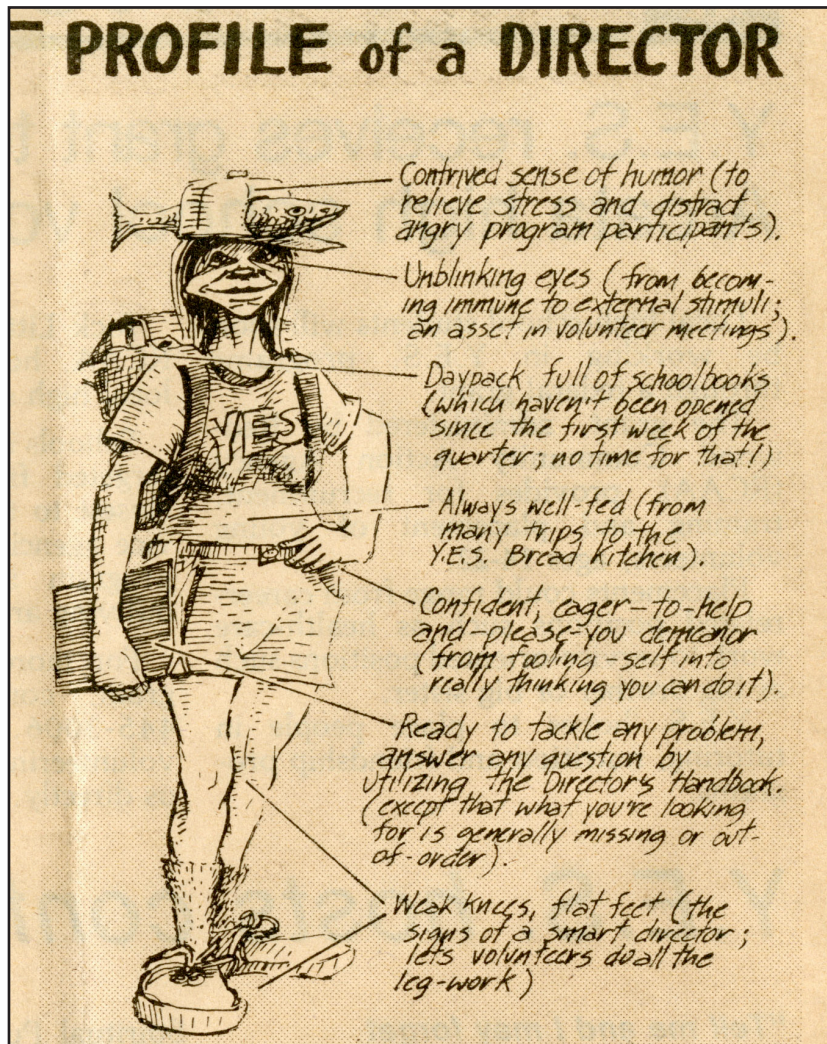 PROFILE of a DIRECTOR
Contrived sense of humor (to
relieve stress and distract
angry program participants).
Unblinking eyes (from becom-
ing immune to external stimuli;
an asset in volunteer meetings).
Daypack full of schoolbooks
(which haven't been opened
since the first week of the
quarter; no time for that!)
YES
Always well-fed (from
many trips to the
Y.E.S. Bread Kitchen).
Confident, eager-to-help
and-please-you demeanor
(from fooling-self into
really thinking you can do it).
Ready to tackle any problem,
answer any question by
utilizing the Director's Handbook.
(except that what you're looking
for is generally missing or out-
of-order).
Weak knees, flat feet, (the
signs of a smart director;
lets volunteers do all the
leg-work)